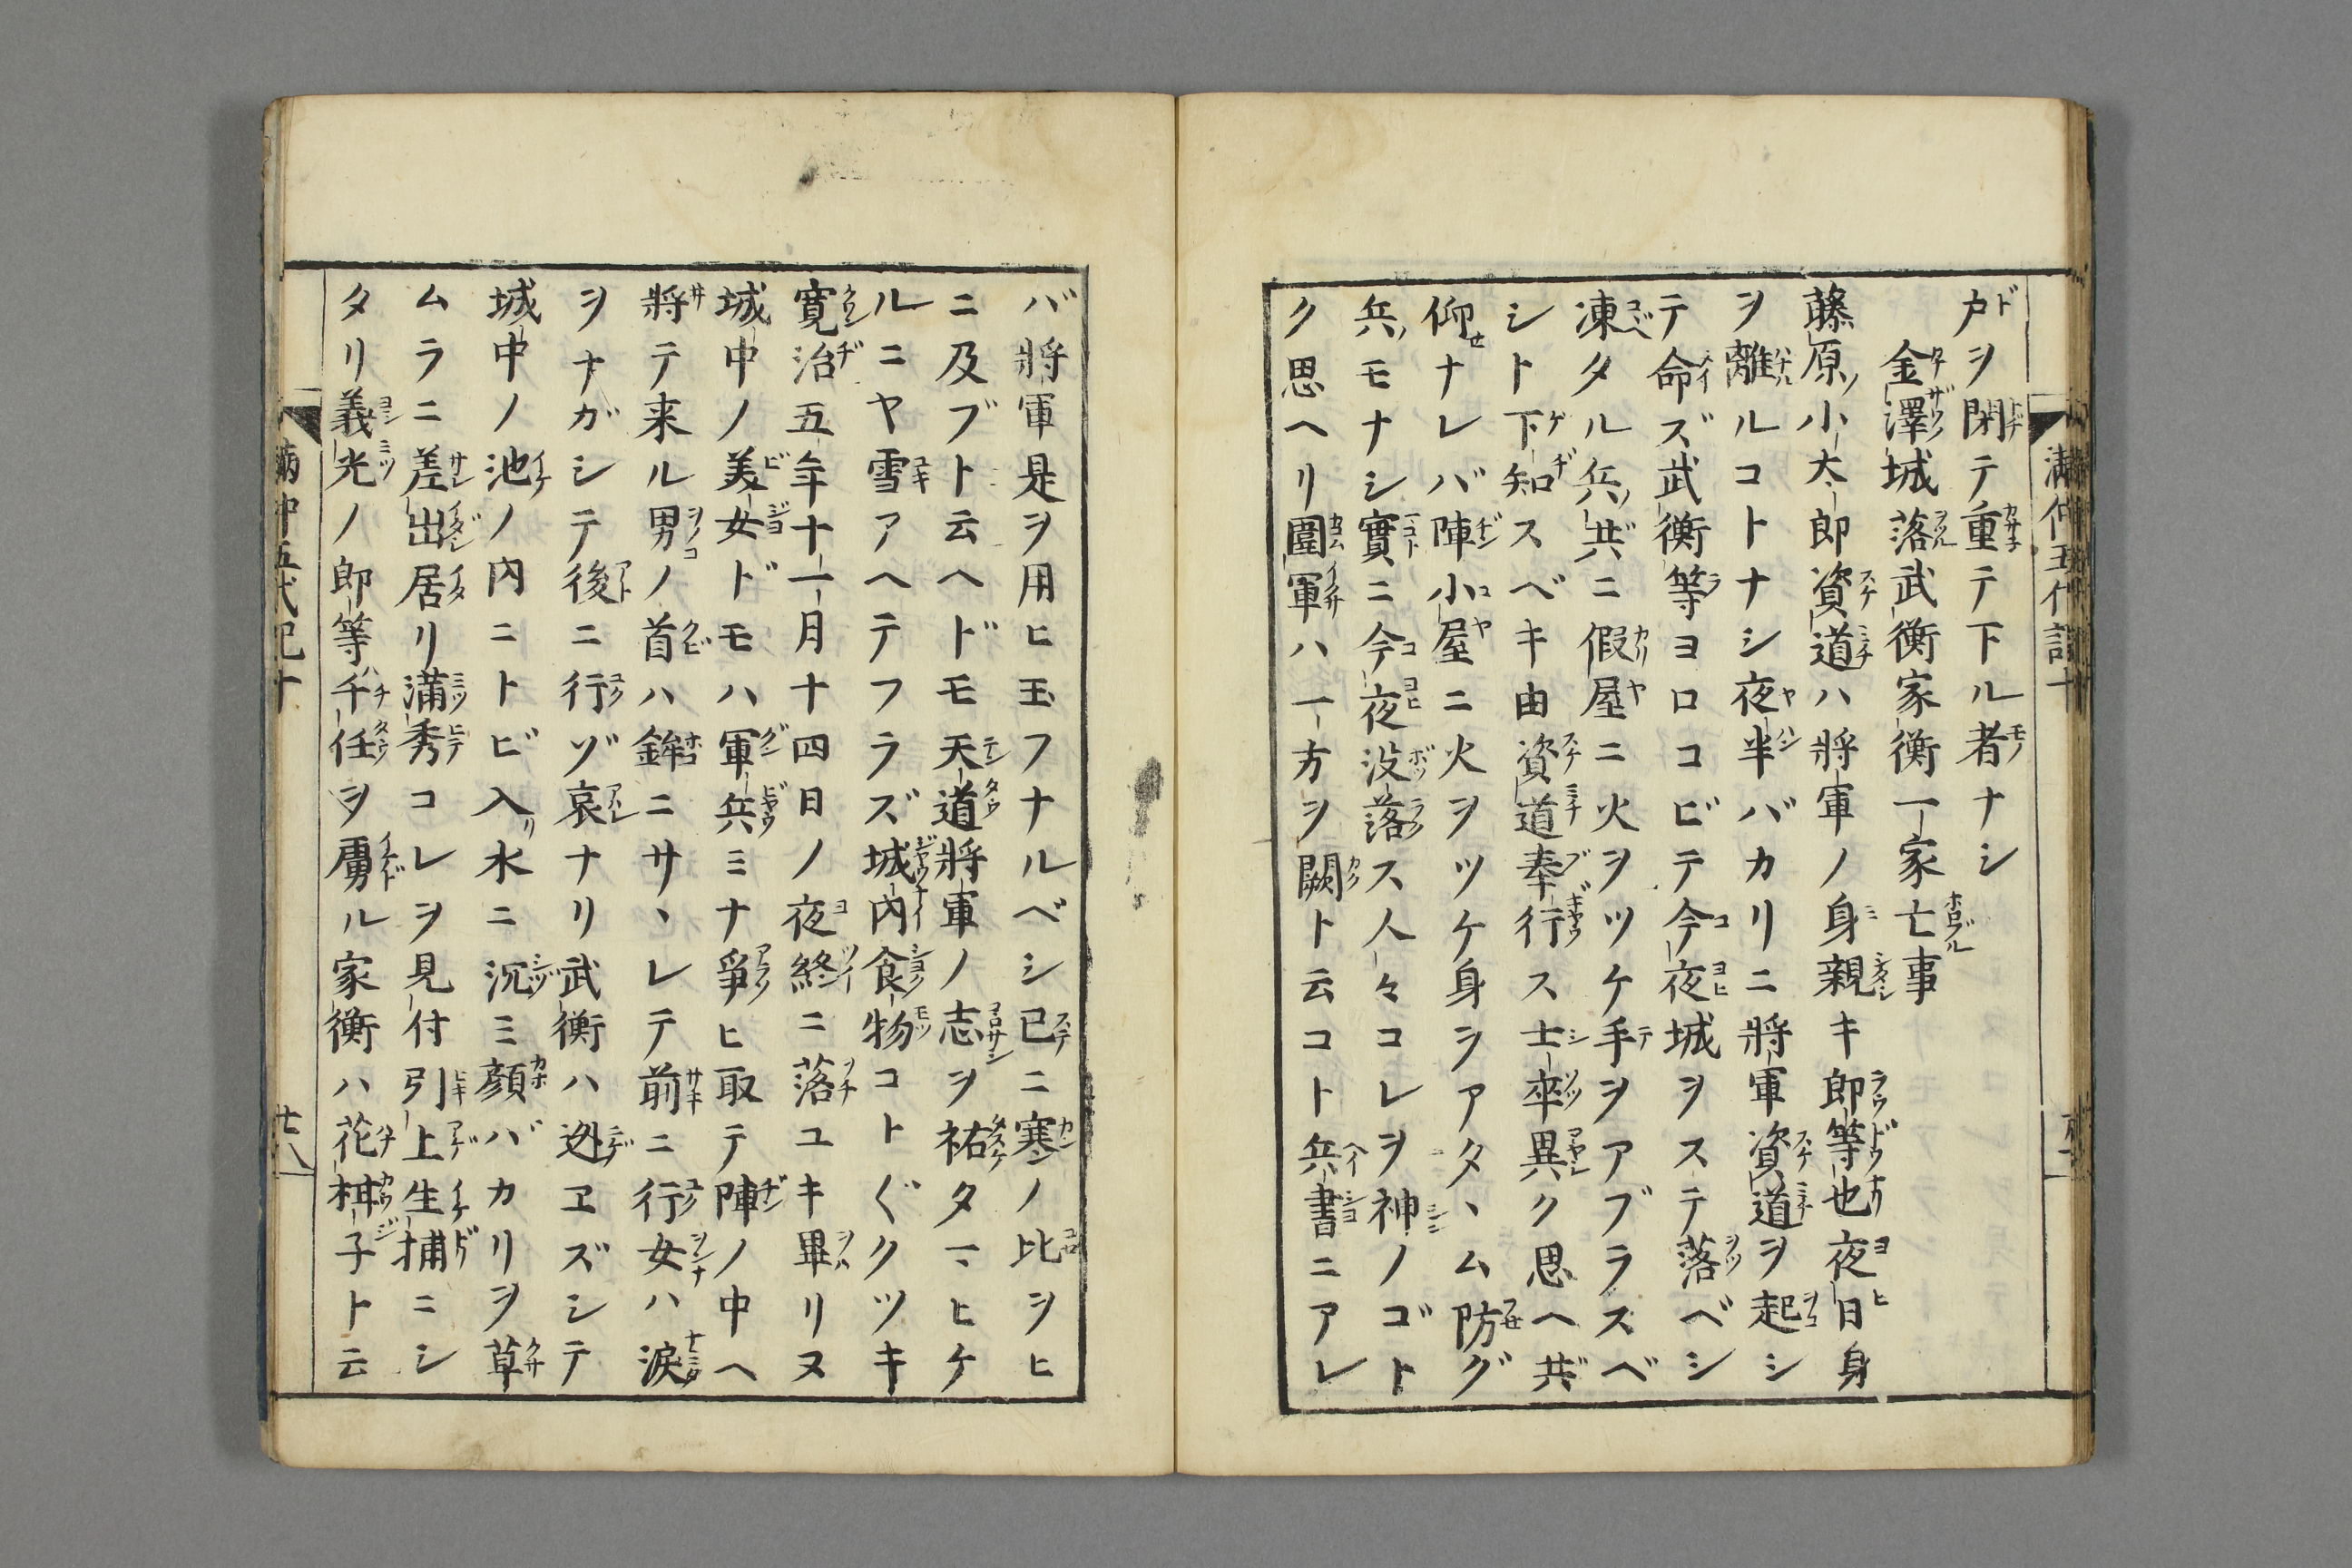 戸ヲ閉テ重テ下ル者ナシ
金澤城落武衡家衡一家亡事
藤原ノ小太郎資道ハ將軍ノ身親キ郎等也夜日身
ヲ離ルコトナシ夜半バカリニ將軍資道ヲ起シ
テ命ズ武衡等ヨロコビテ今夜城ヲステ落ベシ
凍タル兵共ニ假屋ニ火ヲツケ手ヲアブラスベ
シト下知スベキ由資道奉行ス士卒異ク思ヘ共
仰ナレバ陣小屋ニ火ヲツケ身ヲアタヽム防グ
兵モナシ實ニ今夜没落ス人々コレヲ神ノゴト
ク思ヘリ圍軍ハ一方ヲ闕ト云コト兵書ニアレ
バ將軍是ヲ用ヒ玉フナルベシ已ニ寒ノ比ヲヒ
ニ及ブト云ヘドモ天道將軍ノ志ヲ祐タマヒケ
ルニヤ雪アヘテフラズ城内食物コトヾクツキ
寛治五年十一月十四日ノ夜終ニ落ユキ畢リヌ
城中ノ美女ドモハ軍兵ミナ爭ヒ取テ陣ノ中ヘ
將テ来ル男ノ首ハ鉾ニサヽレテ前ニ行女ハ涙
ヲナガシテ後ニ行ゾ哀ナリ武衡ハ迯ヱズシテ
城中ノ池ノ内ニトビ入水ニ沉ミ顔バカリヲ草
ムラニ差出居リ満秀コレヲ見付引上生捕ニシ
タリ義光ノ郎等千任ヲ虜ル家衡ハ花柑子ト云
満仲五代記十
廿八